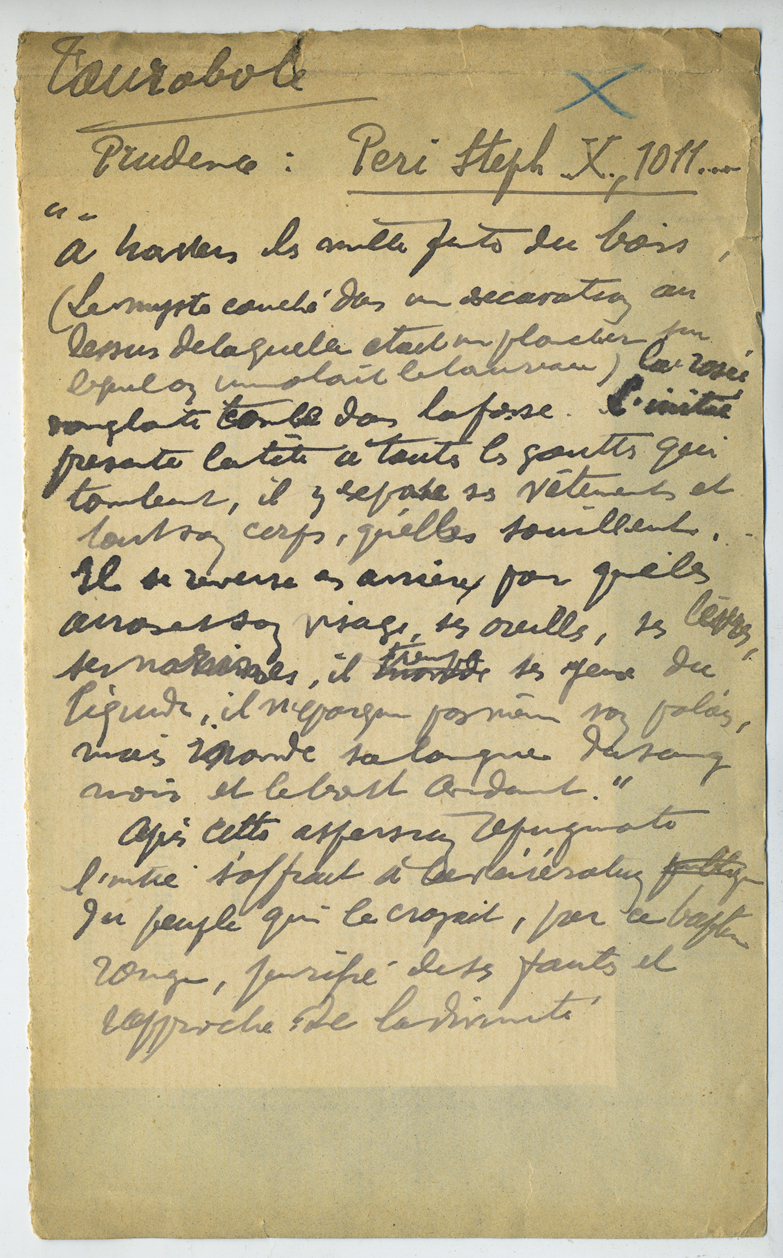 Taurobole
X
Prudence : Peri Steph X, 1011....
" "
A travers les mille fentes du bois,
(Le myste couché dans un excavation au
dessus de laquelle etait un plancher sur
lequel on immolait le taureau) la rosée
sanglante tombe dans la fosse. L'initié
presente la tête a toutes les gouttes qui
tombent, il y expose ses vêtements et
tout son corps, qu'elles souillent.
Il se renverse en arrière pour qu'elles
arrosent son visage, ses oreilles, ses lèvres,
ses narines, il inonde ses yeux du
liquide, il n'épargne pas même son palais,
mais inonde sa langue du sang
noir et le boit ardemment."
Après cette aspersion répugnante
l'initié s'offrait à la vénération
du peuple qui le croyait, par ce baptême
rouge, purifié de ses fautes et
rapproché de la divinité